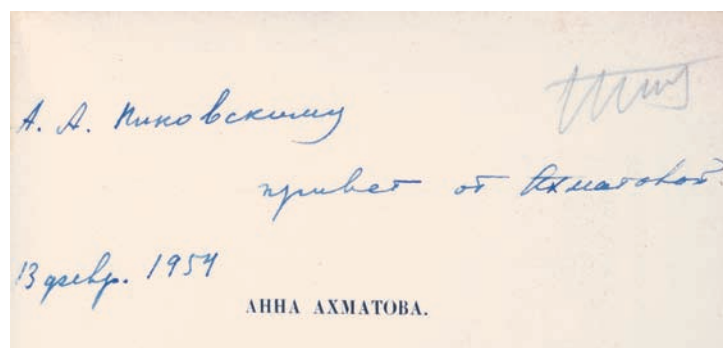 А. А. Пиковскому
привет от Ахматовой.
13 февр. 1954
АННА АХМАТОВА.